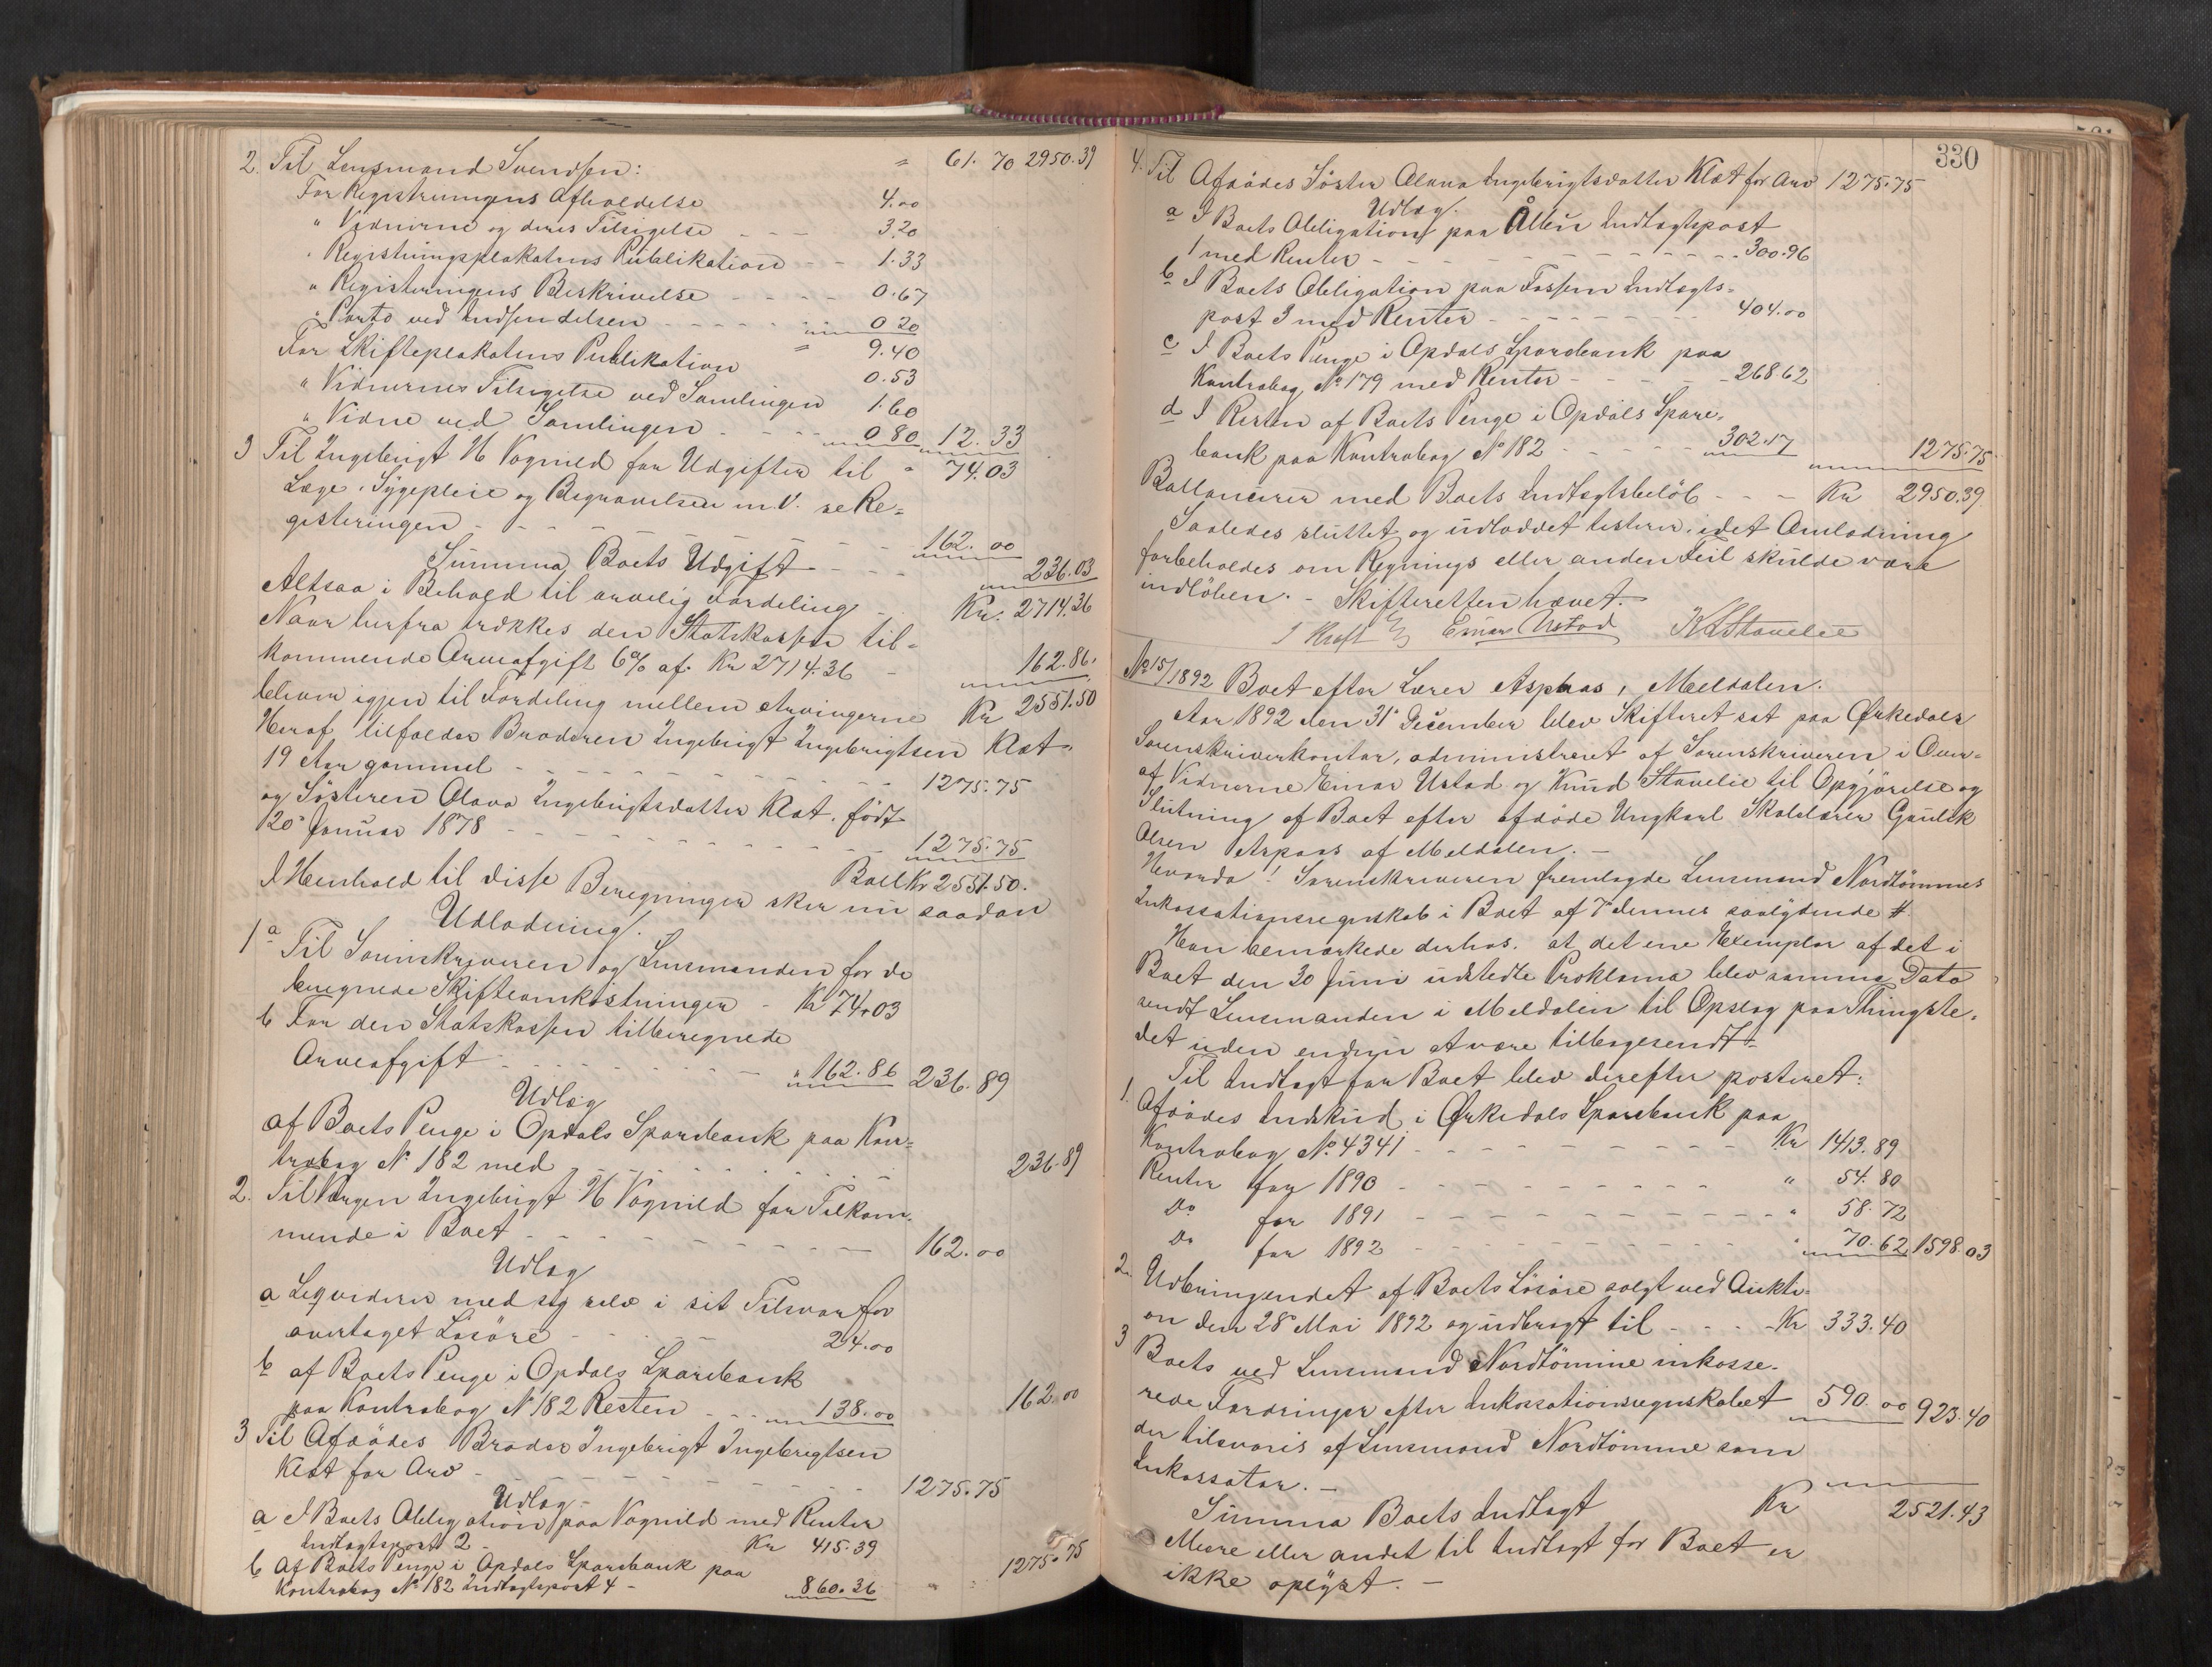 2. Til Lensmand Svendsen: " 61.70 2950.39
For Registreringens Afholdelse 4.00
" Vidnerne og deres Tilsigelse - - - 3.20
" Registringsplakatens Publikation - - 1.33
" Registreringens Beskrivelse - - - - 0.67
" Porto ved Indsendelsen - - - - - 0 20
" 9.40
For Skifteplakatens Publikation 0.53
" Vidnernes Tilsigelse ved Samlingen 1.60
" Vidne ved Samlingen - - - - 0 80 12.33
" 74.03
3 Til Ingebrigt H Vognild for Udgifter til
Læge, Sygepleie og Begravelsen m.V. se Re=
gisteringen - - - - - - - - 162.00
Summa Boets Udgift - - - - 236.03
Altsaa i Behold til arvelig Fordeling - Kr. 2714.36
Naar herfra trækkes den Statskassen til=
kommende Arveafgift 6% af Kr 2714.36 - 162.86.
bliver igjen til Fordeling mellem Arvingerne Kr 2551.50
Heraf tilfalder Broderen Ingebrigt Ingebrigtsen Klæt
19 Aar gammel - - - - - - - - - 1275.75
og Søsteren Olava Ingebrigtsdatter Klæt, født
20 Januar 1878 - - - - - - - - - 1275.75
Ball Kr 2551.50.
I Henhold til disse Beregninger sker nu saadan
Udlodning.
1 a Til Sorenskriveren og Lensmanden for de
beregnede Skifteomkostninger - Kr 74.03
b For den Statskassen tilberegnede
Arveafgift - - - - - - - - " 162.86 236.89
Udlæg
af Boets Penge i Opdals Sparebank paa Kon=
trabog N. 182 med - - - - - - - - 236.89
2. Til Værgen Ingebrigt H Vognild for Tilkom=
mende i Boet - - - - - - - - - 162.00
Udlæg
a Leqviderer med sig selv i sit Tilsvar for
overtaget Løsøre - - - - - 24.00
b af Boets Penge i Opdals Sparebank
paa Kontrabog N 182 Resten - - - 138.00 162.00
3 Til Afdødes Broder Ingebrigt Ingebregtsen
Klæt for Arv - - - - - - - - - 1275.75
Udlæg
a I Boets Obligation paa Vognild med Renter
Indtægtspost 2 - Kr 415.39
b Af Boets Penge i Opdals Sparebank paa
Kontrabog N. 182 Indtægtspost 4 - 860.36 1275.75
330
4. Til Afdødes Søster Olava Ingebrigtsdatter Klæt for Arv 1275.75
Udlæg.
a I Boets Obligation paa Indtægtspost
1 med Renter - - - - - - - - - 300.96
b I Boets Obligation paa Fossem Indtægts=
post 3 med Renter - - - - - - - 404.00
c I Boets Penge i Opdals Sparebank paa
Kontrabog No 179 med Renter - - - - 268.62
d I Resten af Boets Penge i Opdals Spare=
bank paa Kontrabog No 182 - - - - 302.17 1275.75
Ballancerer med Boets Indtægtsbeløb - - - Kr 2950.39
Saaledes sluttet og udloddet testerer, idet Omlodning
forbeholdes om Regnings eller anden Feil skulde være
indløben. - Skifteretten hævet.
I Kraft Einar Ustad K Stavelie
No 15/1892 Boet efter Lærer Aspaas, Meldalen.
Aar 1892 den 31 December blev Skifteret sat paa Ørkedals
Sorenskriverkontor, administreret af Sorenskriveren i Over=
af Vidnerne Einar Ustad og Knud Stavelie til Opgjørelse og
Slutning af Boet efter afdøde Ungkarl Skolelærer Gaulik
Olsen Aspaas af Meldalen. -
Hvorda! Sorenskriveren fremlagde Lensmand Nordtømmes
Inkassationsregnskab i Boet af 7 dennes saalydende #.
Han bemærkede derhos, at det ene Exemplar af det i
Boet den 30 Juni udstedte Proklama blev samme Dato
sendt Lensmanden i Meldalen til Opslag paa Thingste=
det uden endnu at være tilbagesendt. -
Til Indtægt for Boet blev derefter posteret:
1. Afdødes Indskud i Ørkedals Sparebank paa
Kontrabog No 4341 - - - - - - - - Kr 1413.89
Renter for 1890 - - - - - - - - " 54.80
Do for 1891 - - - - - - - - - " 58.72
Do for 1892 - - - - - - - - - " 70.62 1598.03
2. Udbringendet af Boets Løsøre solgt ved Aukti=
on den 28 Mai 1892 og udbragt til - - - Kr 333.40
3 Boets ved Lensmand Nordtømme inkasse=
rede Fordringer efter Inkassationsregnskabet 590.00 923.40
der tilsvares af Lensmand Nordtømme som
Inkassator. -
Summa Boets Indtægt Kr 2521.43
Mere eller andet til Indtægt for Boet er
ikke oplyst. -